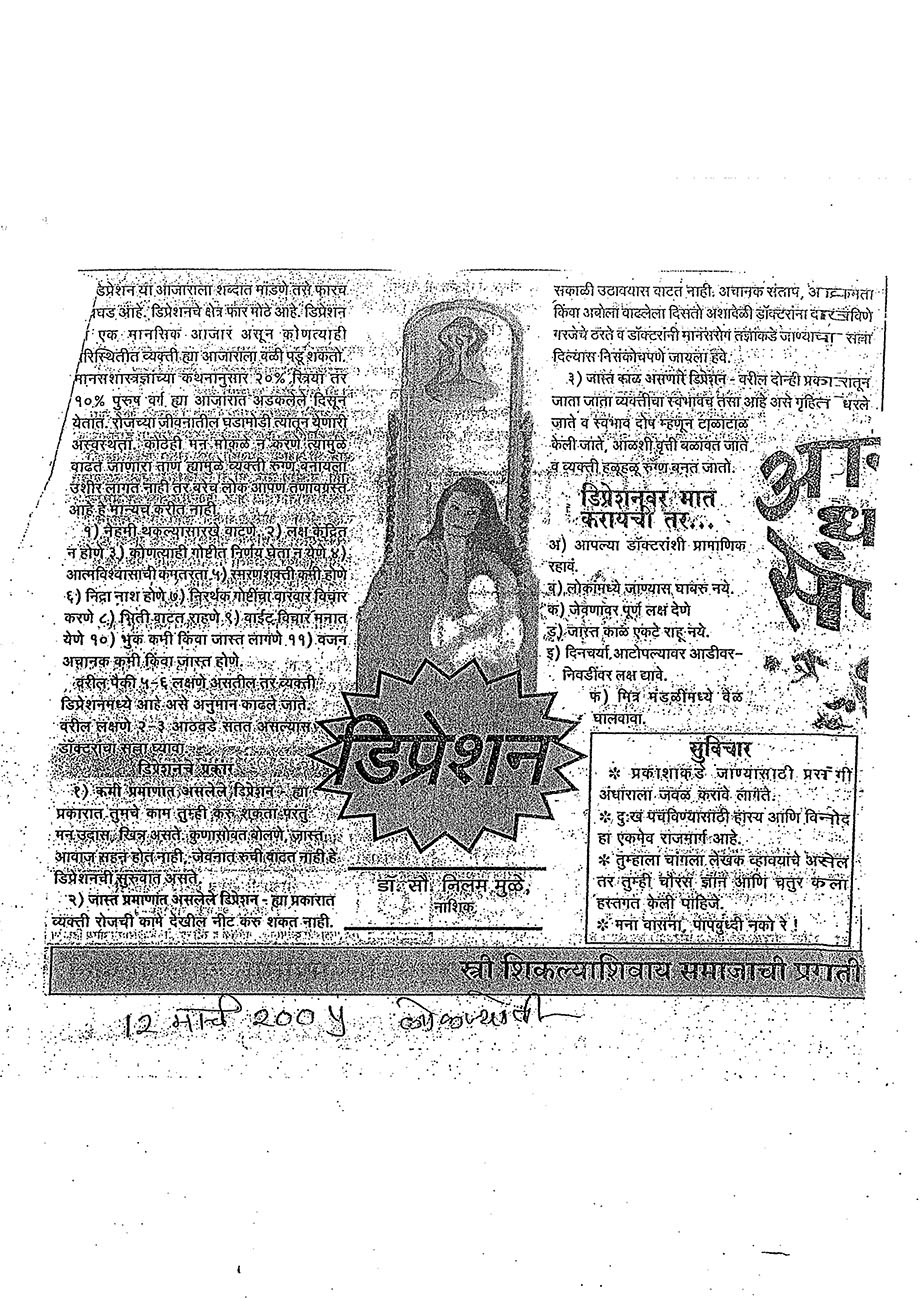 डिप्रेशन या आजाराला शब्दात मांडणे तसे फारच
घड आहे. डिप्रेशनचे क्षेत्र फार मोठे आहे. डिप्रेशन
एक मानसिक आजार असून कोणत्याही
रिस्थितीत व्यक्ती ह्या आजाराला बळी पडू शकतो.
मानसशास्त्रज्ञांच्या कथनानुसार २०% स्त्रिया तर
१०% पुरूष वर्ग ह्या आजारात अडकलेले दिसून
येतात. रोजच्या जीवनातील घडामोडी त्यातून येणारी
अस्वस्थता. कोठेही मन मोकळे न करणे त्यामुळे
वाढत जाणारा ताण ह्यामुळे व्यक्ती रुग्ण बनायला
उशीर लागत नाही तर बरेच लोक आपण तणावग्रस्त
आहे हे मान्यच करीत नाही.
१) नेहमी थकल्यासारखे वाटणे २) लक्ष केंद्रित
न होणे ३) कोणत्याही गोष्टीत निर्णय घेता न येणे ४)
आत्मविश्वासाची कमतरता ५) स्मरणशक्ती कमी होणे
६) निद्रा नाश होणे ७) निरर्थक गोष्टींचा वारंवार विचार
करणे ८) भिती वाटत राहणे ९) वाईट विचार मनात
येणे १०) भुक कमी किंवा जास्त लागणे ११) वजन
अचानक कमी किंवा जास्त होणे.
वरील पैकी ५-६ लक्षणे असतील तर व्यक्ती
डिप्रेशनमध्ये आहे असे अनुमान काढले जाते.
वरील लक्षणे २-३ आठवडे सतत असल्यास
डॉक्टरांचा सल्ला घ्यावा.
डिप्रेशनचे प्रकार
१) कमी प्रमाणात असलेले डिप्रेशन - ह्या
प्रकारात तुमचे काम तुम्ही करु शकता परंतु
मन उदास, खिन्न असते. कुणासोबत बोलणे, जास्त
आवाज सहन होत नाही, जेवनात रुची वाटत नाही हे
डिप्रेशनची सुरुवात असते.
२) जास्त प्रमाणात असलेले डिप्रेशन - ह्या प्रकारात
व्यक्ती रोजची कामे देखील नीट करु शकत नाही.
डिप्रेशन
डॉ. सौ. निलम मुळे,
नाशिक
सकाळी उठावयास वाटत नाही. अचानक संताप,
किंवा अबोला वाटलेला दिसतो अशावेळी डॉक्टरांना
गरजेचे ठरते व डॉक्टरांनी मानसरोग तज्ञांकडे जाण्याचा सल्ला
दिल्यास निसंकोचपणे जायला हवे.
३) जास्त काळ असणारे डिप्रेशन - वरील दोन्ही प्रकारातून
जाता जाता व्यक्तीचा स्वभावच तसा आहे असे गृहित धरले
जाते व स्वभाव दोष म्हणून टाळाटाळ
केली जाते, आळशी वृत्ती बळावत जाते
व व्यक्ती हळूहळू रुग्ण बनत जातो.
डिप्रेशनवर मात
करायची तर...
अ) आपल्या डॉक्टरांशी प्रामाणिक
रहावं.
ब) लोकांमध्ये जाण्यास घाबरु नये.
क) जेवणावर पूर्ण लक्ष देणे
ड) जास्त काळ एकटे राहू नये.
इ) दिनचर्या आटोपल्यावर आडीवर-
निवडींवर लक्ष द्यावे.
फ) मित्र मंडळींमध्ये वेळ
घालवावा.
सुविचार
* प्रकाशाकडे जाण्यासाठी प्रसंगी
अंधाराला जवळ करावे लागते.
* दुःख पचविण्यासाठी हास्य आणि विनोद
हा एकमेव राजमार्ग आहे.
* तुम्हाला चांगला लेखक व्हावयाचे असेल
तर तुम्ही चौरस ज्ञान आणि चतुर कला
हस्तगत केली पाहिजे.
* मना वासना, पापबुध्दी नको रे !
स्त्री शिकल्याशिवाय समाजाची प्रगती
12 मार्च 200५ लोकज्योती